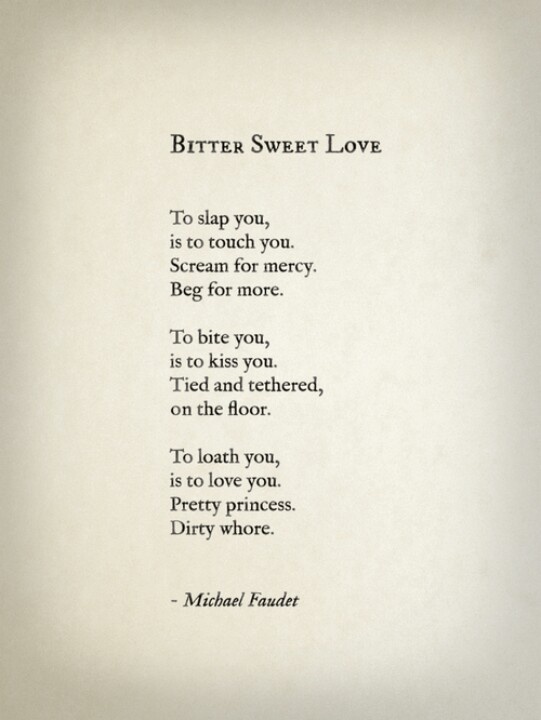 Bitter Sweet Love
To slap you,
is to touch you.
Scream for mercy.
Beg for more.
To bite you,
is to kiss you.
Tied and tethered,
on the floor.
To loath you,
is to love you.
Pretty princess.
Dirty whore.
- Michael Faudet